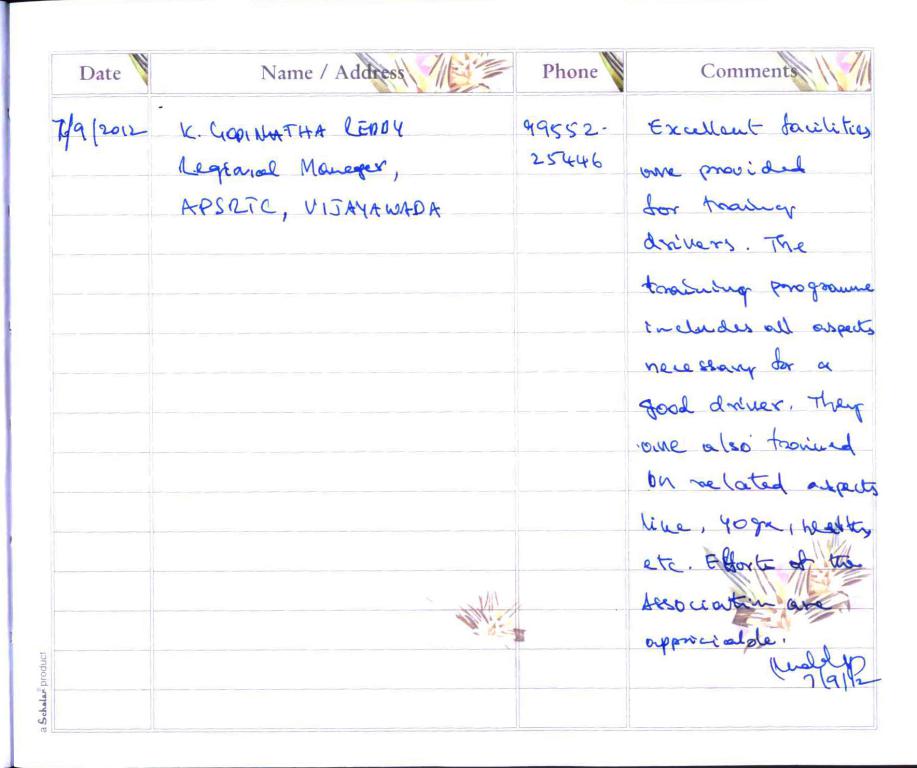 Date Name / Address Phone Comments
7/9/2012 K. GOPINATHA REDDY 99552- Excellent facilities
Regional Manager, 25446 are provided
APSRTC, VIJAYAWADA for training
drivers. The
training programme
includes all aspects
necessary for a
good driver. They
are also trained
on related aspects
like, yoga, health,
etc. Efforts of the
Association are
appriciable.
7/9/12
a Scholar product